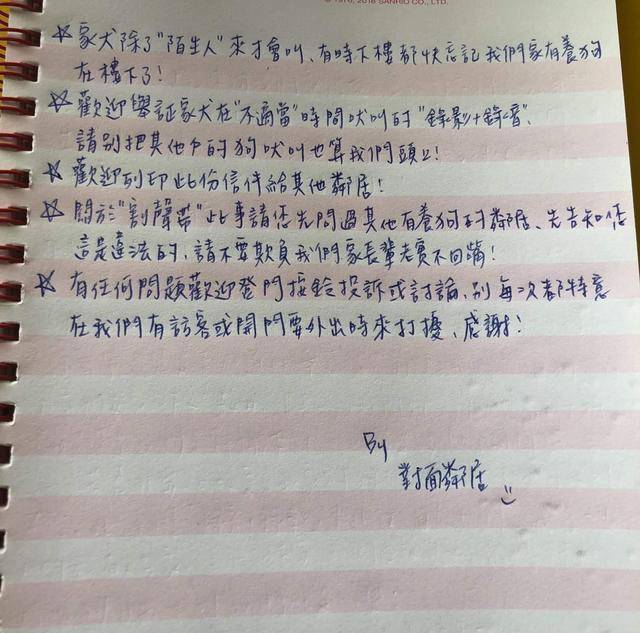 © 1976, 2016 SANRIO CO., LTD.
☆ 家犬除了"陌生人"來才會叫、有時下樓都快忘記我們家有養狗
在樓下了!
☆ 歡迎舉証家犬在"不適當"時間吠叫的"錄影+錄音"、
請別把其他戶的狗吠叫也算我們頭上!
☆ 歡迎列印此份信件給其他鄰居!
☆ 關於"割聲帶"此事請您先問過其他有養狗的鄰居、先告知您
這是違法的,請不要欺負我們家長輩老實不回嘴!
☆ 有任何問題歡迎登門按鈴投訴或討論,別每次都特意
在我們有訪客或開門要外出時來打擾、感謝!
By
對面鄰居